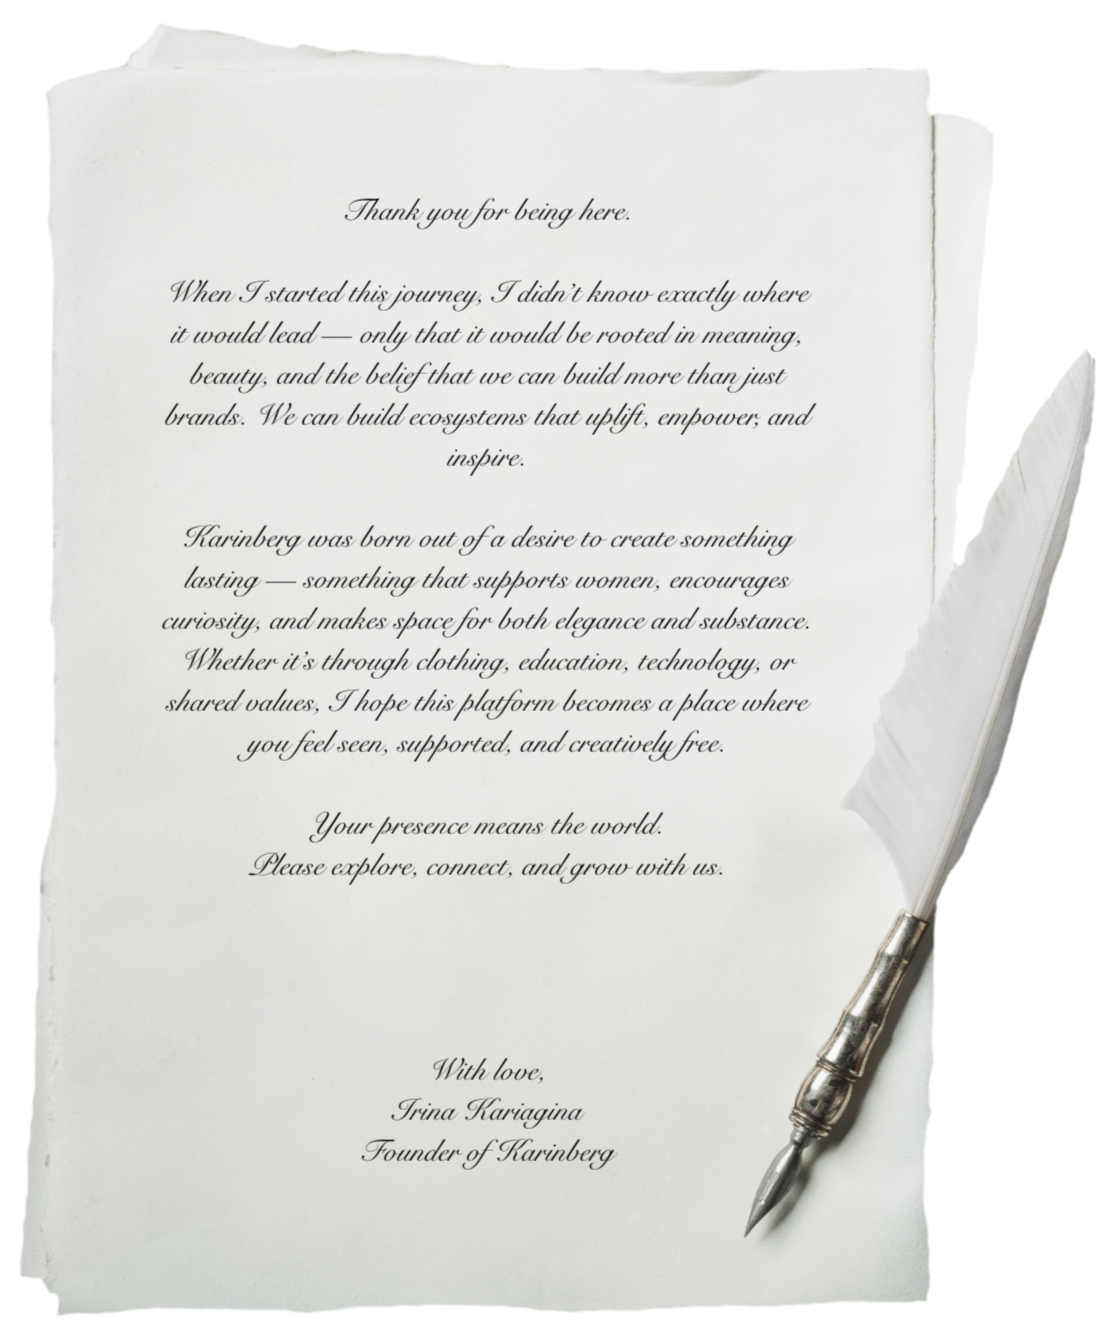 Thank you for being here.
When I started this journey, I didn't know exactly where
it would lead — only that it would be rooted in meaning,
beauty, and the belief that we can build more than just
brands. We can build ecosystems that uplift, empower, and
inspire.
Karinberg was born out of a desire to create something
lasting — something that supports women, encourages
curiosity, and makes space for both elegance and substance.
Whether it's through clothing, education, technology, or
shared values, I hope this platform becomes a place where
you feel seen, supported, and creatively free.
Your presence means the world.
Please explore, connect, and grow with us.
With love,
Irina Kariagina
Founder of Karinberg